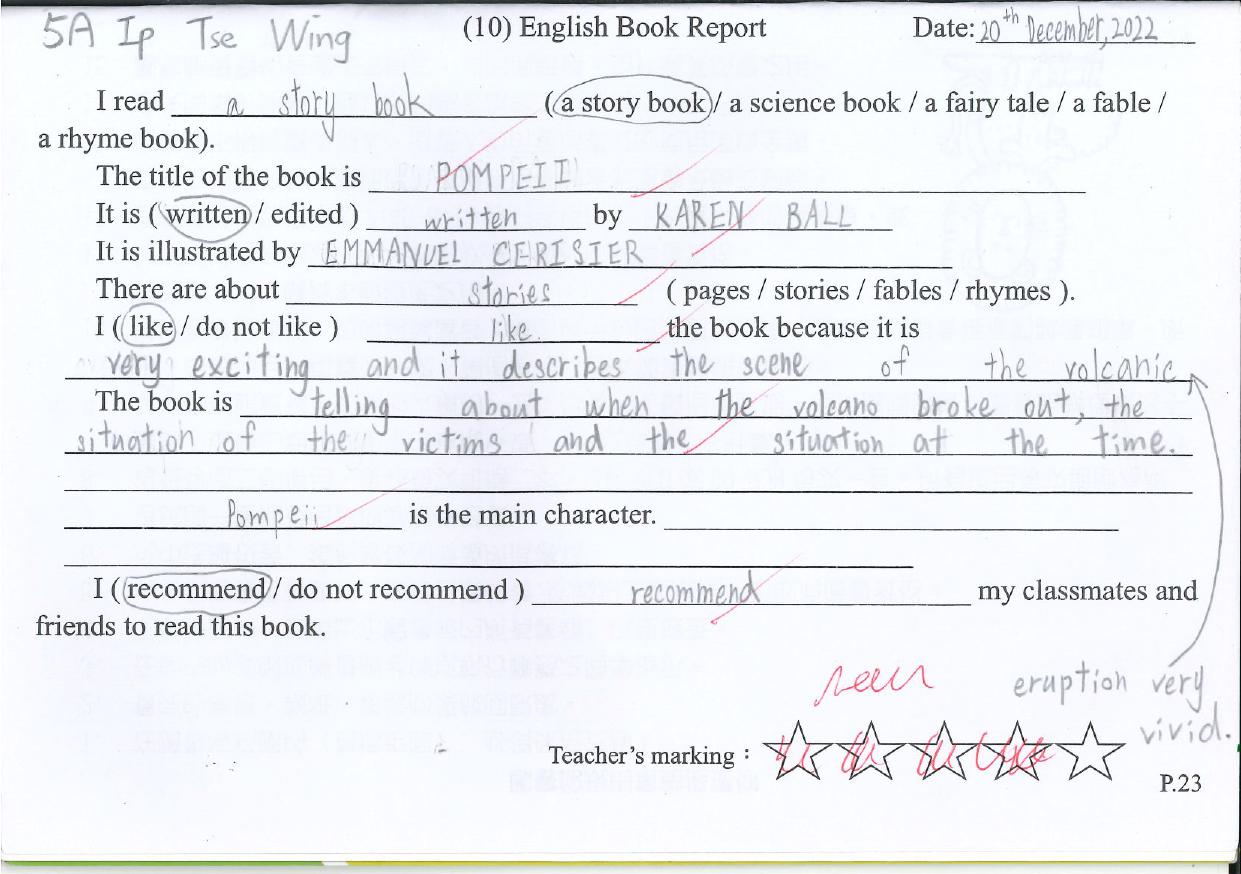 5A Ip Tse Wing (10) English Book Report Date: 20th December, 2022
I read a story book (a story book / a science book / a fairy tale / a fable /
a rhyme book).
The title of the book is POMPEII
It is ( written / edited ) written by KAREN BALL
It is illustrated by EMMANUEL CERISIER
There are about stories ( pages / stories / fables / rhymes ).
I ( like / do not like ) like. the book because it is
very exciting and it describes the scene of the volcanic
The book is telling about when the volcano broke out, the
situation of the victims and the situation at the time.
Pompeii is the main character.
I ( recommend / do not recommend ) recommend my classmates and
friends to read this book.
eruption very
vivid.
Teacher's marking :
P.23